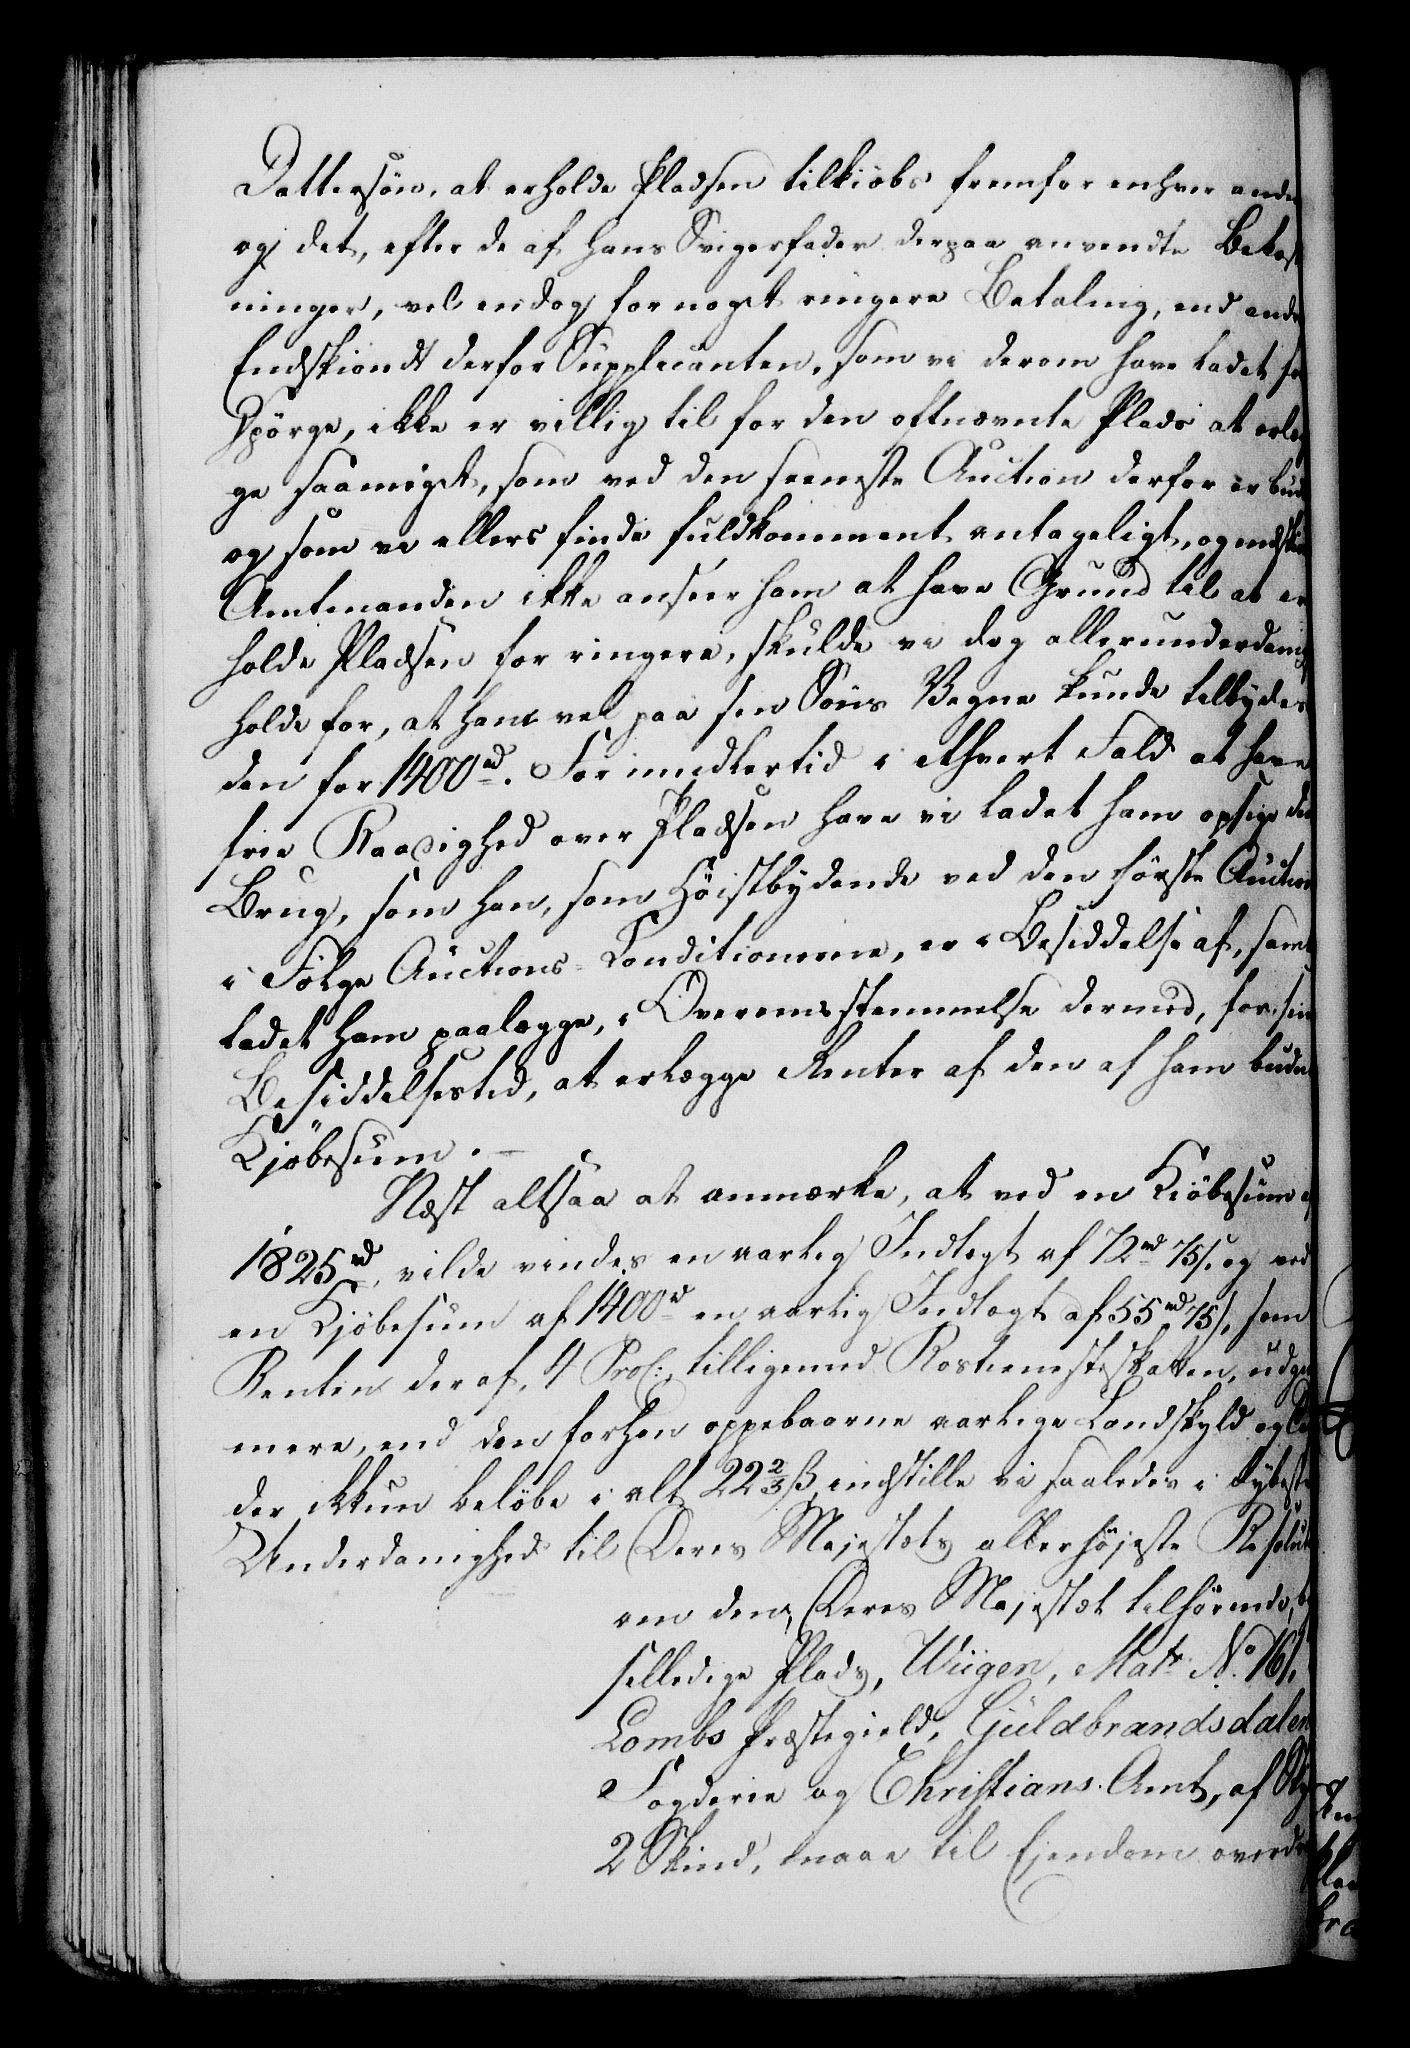 Dattersön, at erholde Pladsen tilkiøbs fremfor enhver anden
og det, efter de af hans Svigerfader derpaa anvendte Bekost
ninger, vel endog for noget ringere Betaling, end andre
Endskiøndt derfor Supplicanten, som vi derom have ladet for
spörge, ikke er villig til for den oftnævnte Plads at erlæg
ge saameget, som ved den seeneste Auction derfor er budet
og som vi ellers finde fuldkomment antageligt, og endskiönt
Amtmanden ikke anseer ham at have Grund til at er
holde Pladsen for ringere, skulde vi dog allerunderdanigst
holde for, at han vel paa sin Söns Vegne kunde tilbydes
den for 1400 rd. For imidlertid i ethvert Fald at have
frie Raadighed over Pladsen have vi ladet ham opsige den
Brug, som han, som Höistbydende ved den förste Auction
i Fölge Auctions-Conditionerne, er i Besiddelse af, samt
ladet ham paalægge, i Overensstemmelse dermed, for sin
Besiddelsestid, at erlægge Renter af den af ham budne
Kjöbesum. –
Næst altsaa at anmærke, at ved en Kiöbesum af
1825 rd, vilde vindes en aarlig Indtægt af 72 rd 75 s. og ved
en Kjöbesum af 1400 rd en aarlig Indtægt af 55 rd 75 s, som
Renten deraf, 4 Proc:, tilligemed Rostienesteskatten, udgör
mere, end den forhen oppebaarne aarlige Landskyld og
der ikkun belöbe i alt 22 2/3 ß, indstille vi saaledes i dybeste
Underdanighed til Deres Majestæts allerhöjeste Resolution
om den, Deres Majestæt tilhörende,
selledige Plads, Wiigen, Matr. No. 161,
Lombs Præstegield, Guldbrandsdalens
Fogderie og Christians Amt, af Skyld
2 Skind, maae til Ejendom overdra